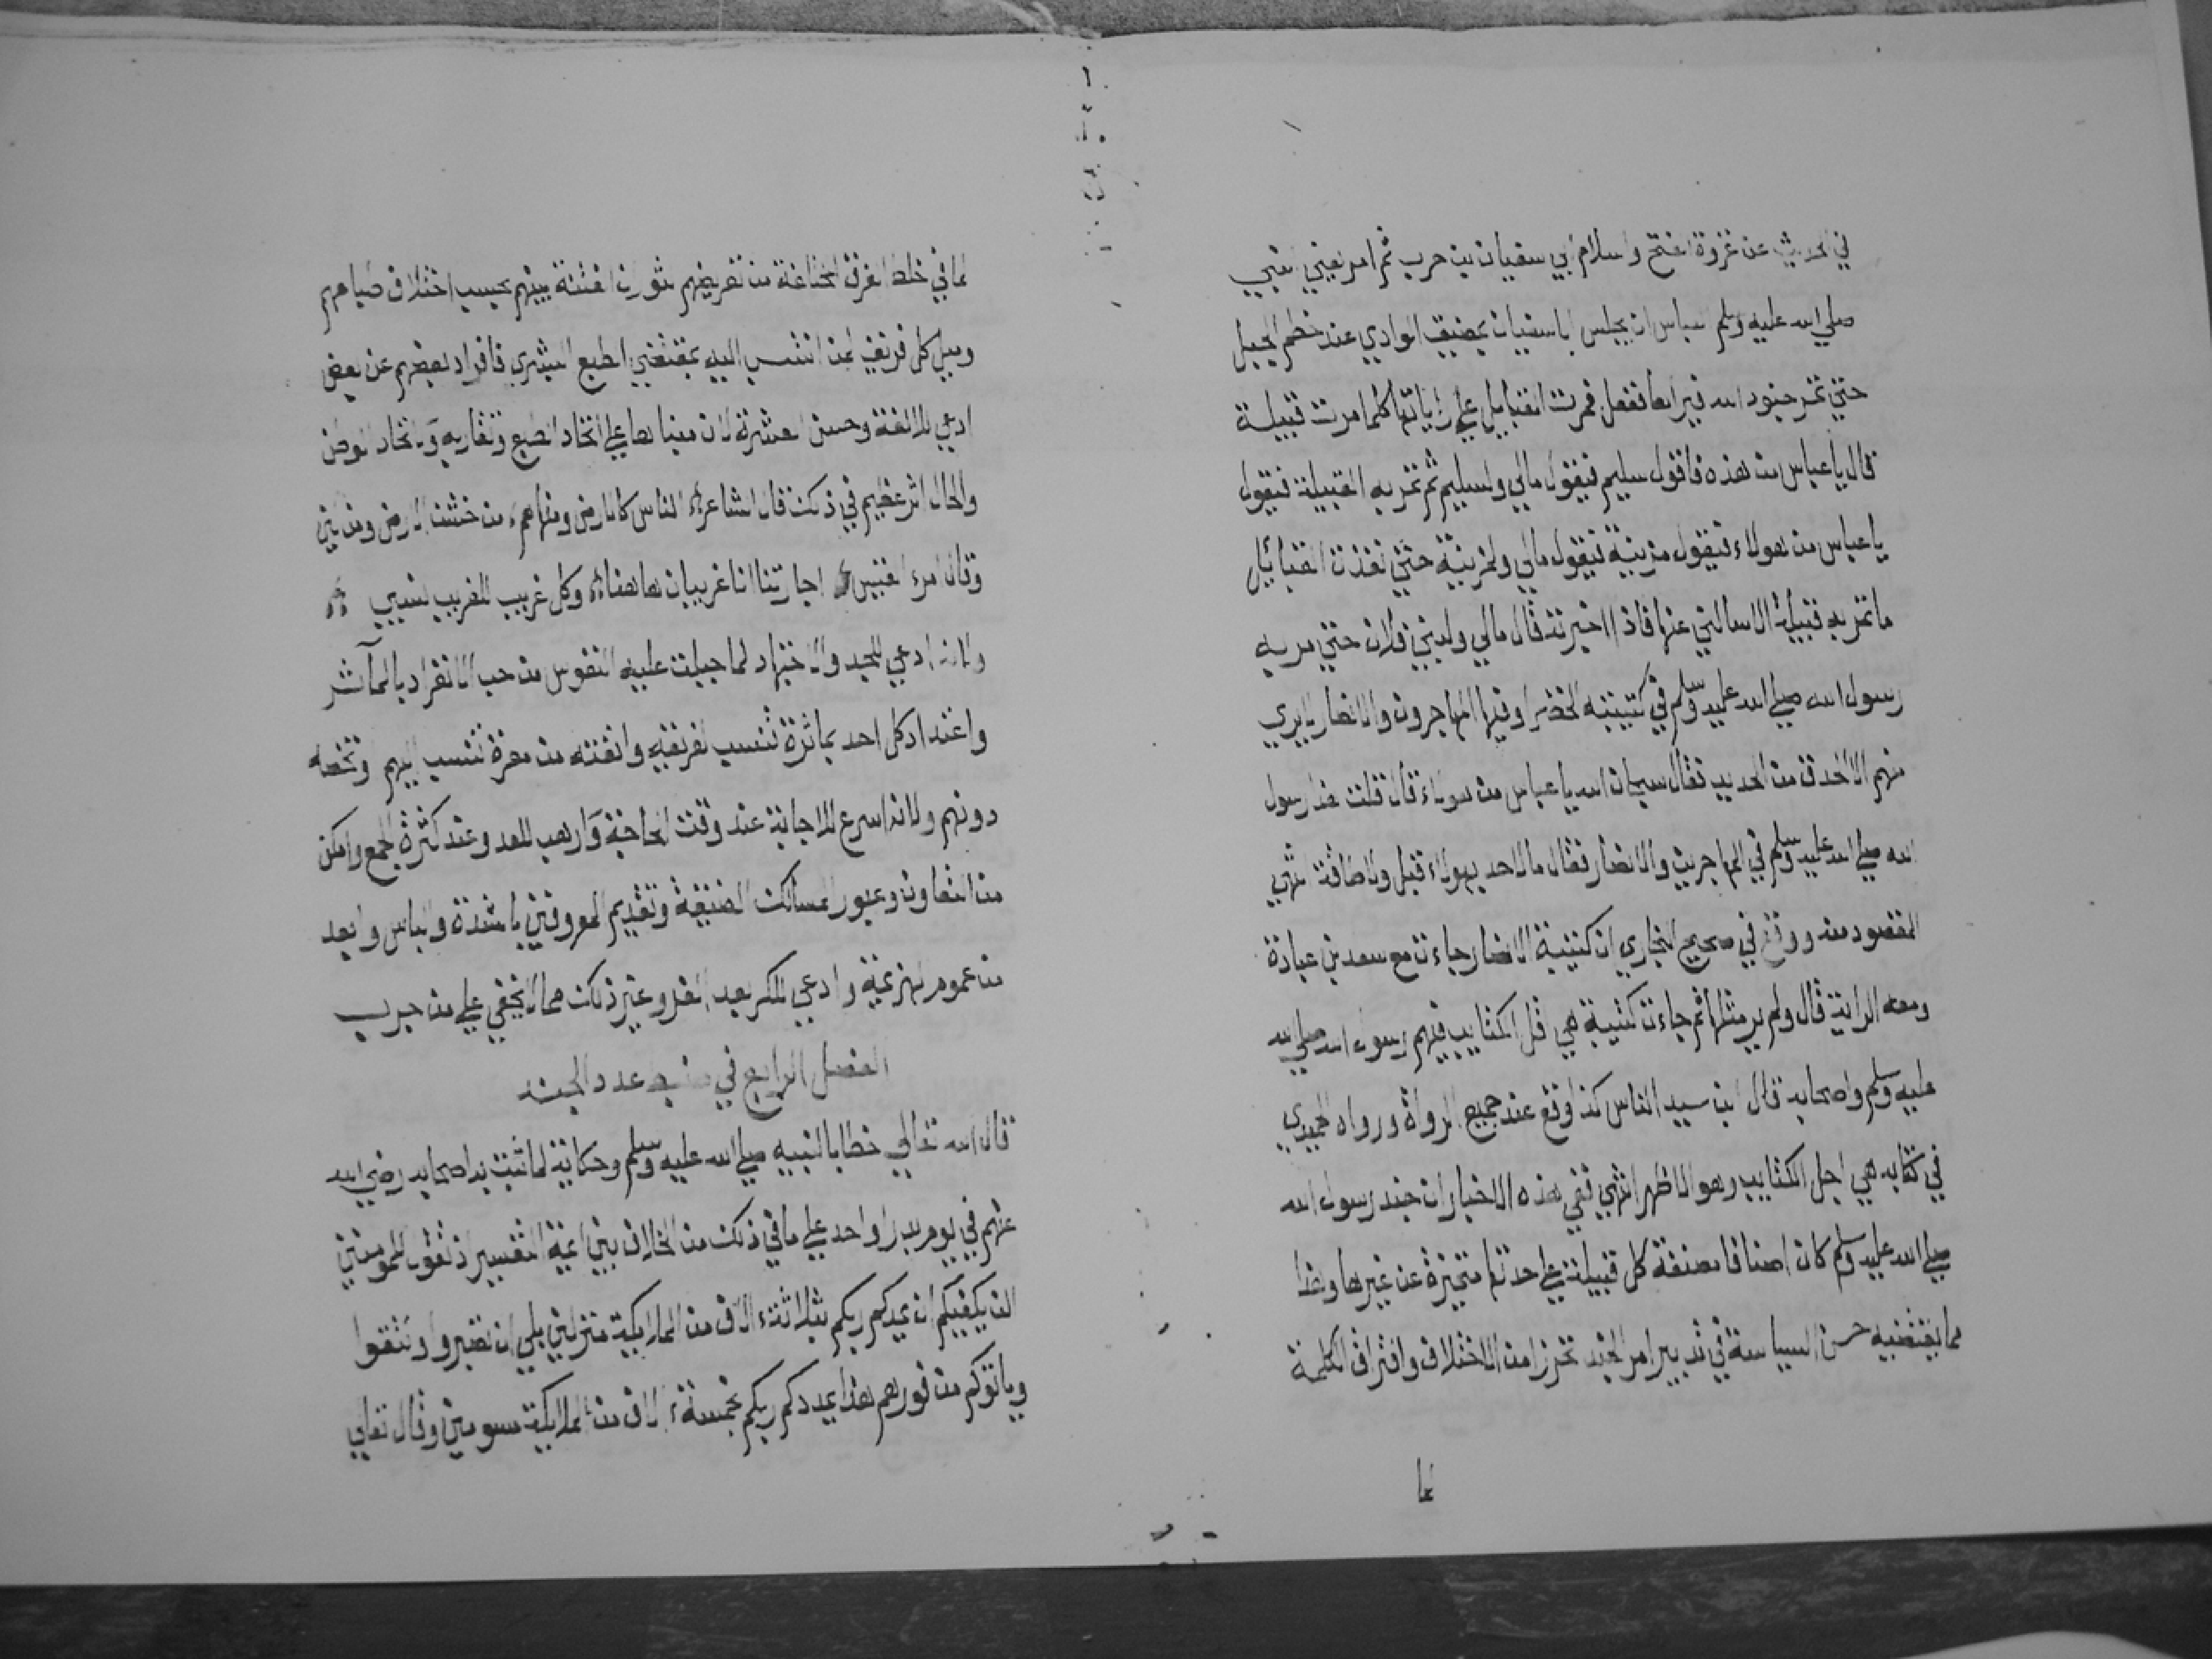 في الحديث عن غزوة الفتح واسلام ابي سفيان بن حرب ثم امر يعني النبي
صلي الله عليه وسلم العباس ان يجلس ابا سفيان بمضيق الوادي عند خطم الجبل
حتي تمر جنود الله فيراها ففعل فمرت القبايل علي راياتها كلما مرت قبيلة
قال يا عباس من هذه فاقول سليم فيقول مالي ولسليم ثم تمر به القبيلة فيقول
يا عباس من هولاء فيقول مزينة فيقول مالي ولمزينة حتي نفذت القبايل
ما تمر به قبيلة الا سالني عنها فاذا اخبرته قال مالي ولبني فلان حتي مر به
رسول الله صلي الله عليه وسلم في كتيبته الخضرا وفيها المهاجرون والانصار لا يري
منهم الا الحدق من الحديد فقال سبحان الله يا عباس من هولاء قال قلت هذا رسول
الله صلي الله عليه وسلم في المهاجرين والانصار فقال ما لاحد بهولاء قبل ولا طاقة انتهي
المقصود منه ووقع في صحيح البخاري ان كتيبة الانصار جاءت مع سعد بن عبادة
ومعه الراية قال ولم ير مثلها ثم جاءت كتيبة هي قل الكتايب فيهم رسول الله صلي الله
عليه وسلم واصحابه قال ابن سيد الناس كذا وقع عند جميع الرواة ورواه الحميدي
في كتابه هي اجل الكتايب وهو الاظهر انتهي ففي هذه الاخبار ان جند رسول الله
صلي الله عليه وسلم كان اصنافا مصنفة كل قبيلة علي حدتها متحيزة عن غيرها وهذا
مما يقتضيه حسن السياسة في تدبير امر الجند تحرزا من الاختلاف وافتراق الكلمة
لما
لما في خلط الفرق المختلفة من تعريضهم لثوران الفتنة بينهم بحسب اختلاف طباعهم
وميل كل فريق لمن انتسب اليه بمقتضي الطبع البشري فافراد بعضهم عن بعض
ادعي للالفة وحسن العشرة لان مبناها علي اتحاد الطبع وتقاربه ولاتحاد الوطن
والحال اثر عظيم في ذلك قال الشاعر الناس كالارض ومنها هم من خشن الارض ومن لين
وقال امرء القيس اجارتنا انا غريبان هاهنا وكل غريب للغريب نسيب
ولانه ادعي للجد والاجتهاد لما جبلت عليه النفوس من حب الانفراد بالمآثر
واعتداد كل احد بماثرة تنسب لفريقه وانفته من معرة تنسب اليهم وتخصه
دونهم ولانه اسرع للاجابة عند وقت الحاجة وارهب للعدو عند كثرة الجمع وامكن
من التعاون وعبور المسالك الضيقة وتقديم المعروفين بالشدة والباس وابعد
من عموم الهزيمة وادعي للكر بعد الفر وغير ذلك مما لا يخفي علي من جرب
الفصل الرابع في ضبط عدد الجند
قال الله تعالي خطابا لنبيه صلي الله عليه وسلم وحكاية لما ثبت به اصحابه رضي الله
عنهم في يوم بدر او احد علي ما في ذلك من الخلاف بين ايمة التفسير اذ تقول للمومنين
الن يكفيكم ان يمدكم ربكم بثلاثة الاف من الملايكة منزلين بلي ان تصبروا وتتقوا
وياتوكم من فورهم هذا يمددكم ربكم بخمسة الاف من الملايكة مسومين وقال تعالي